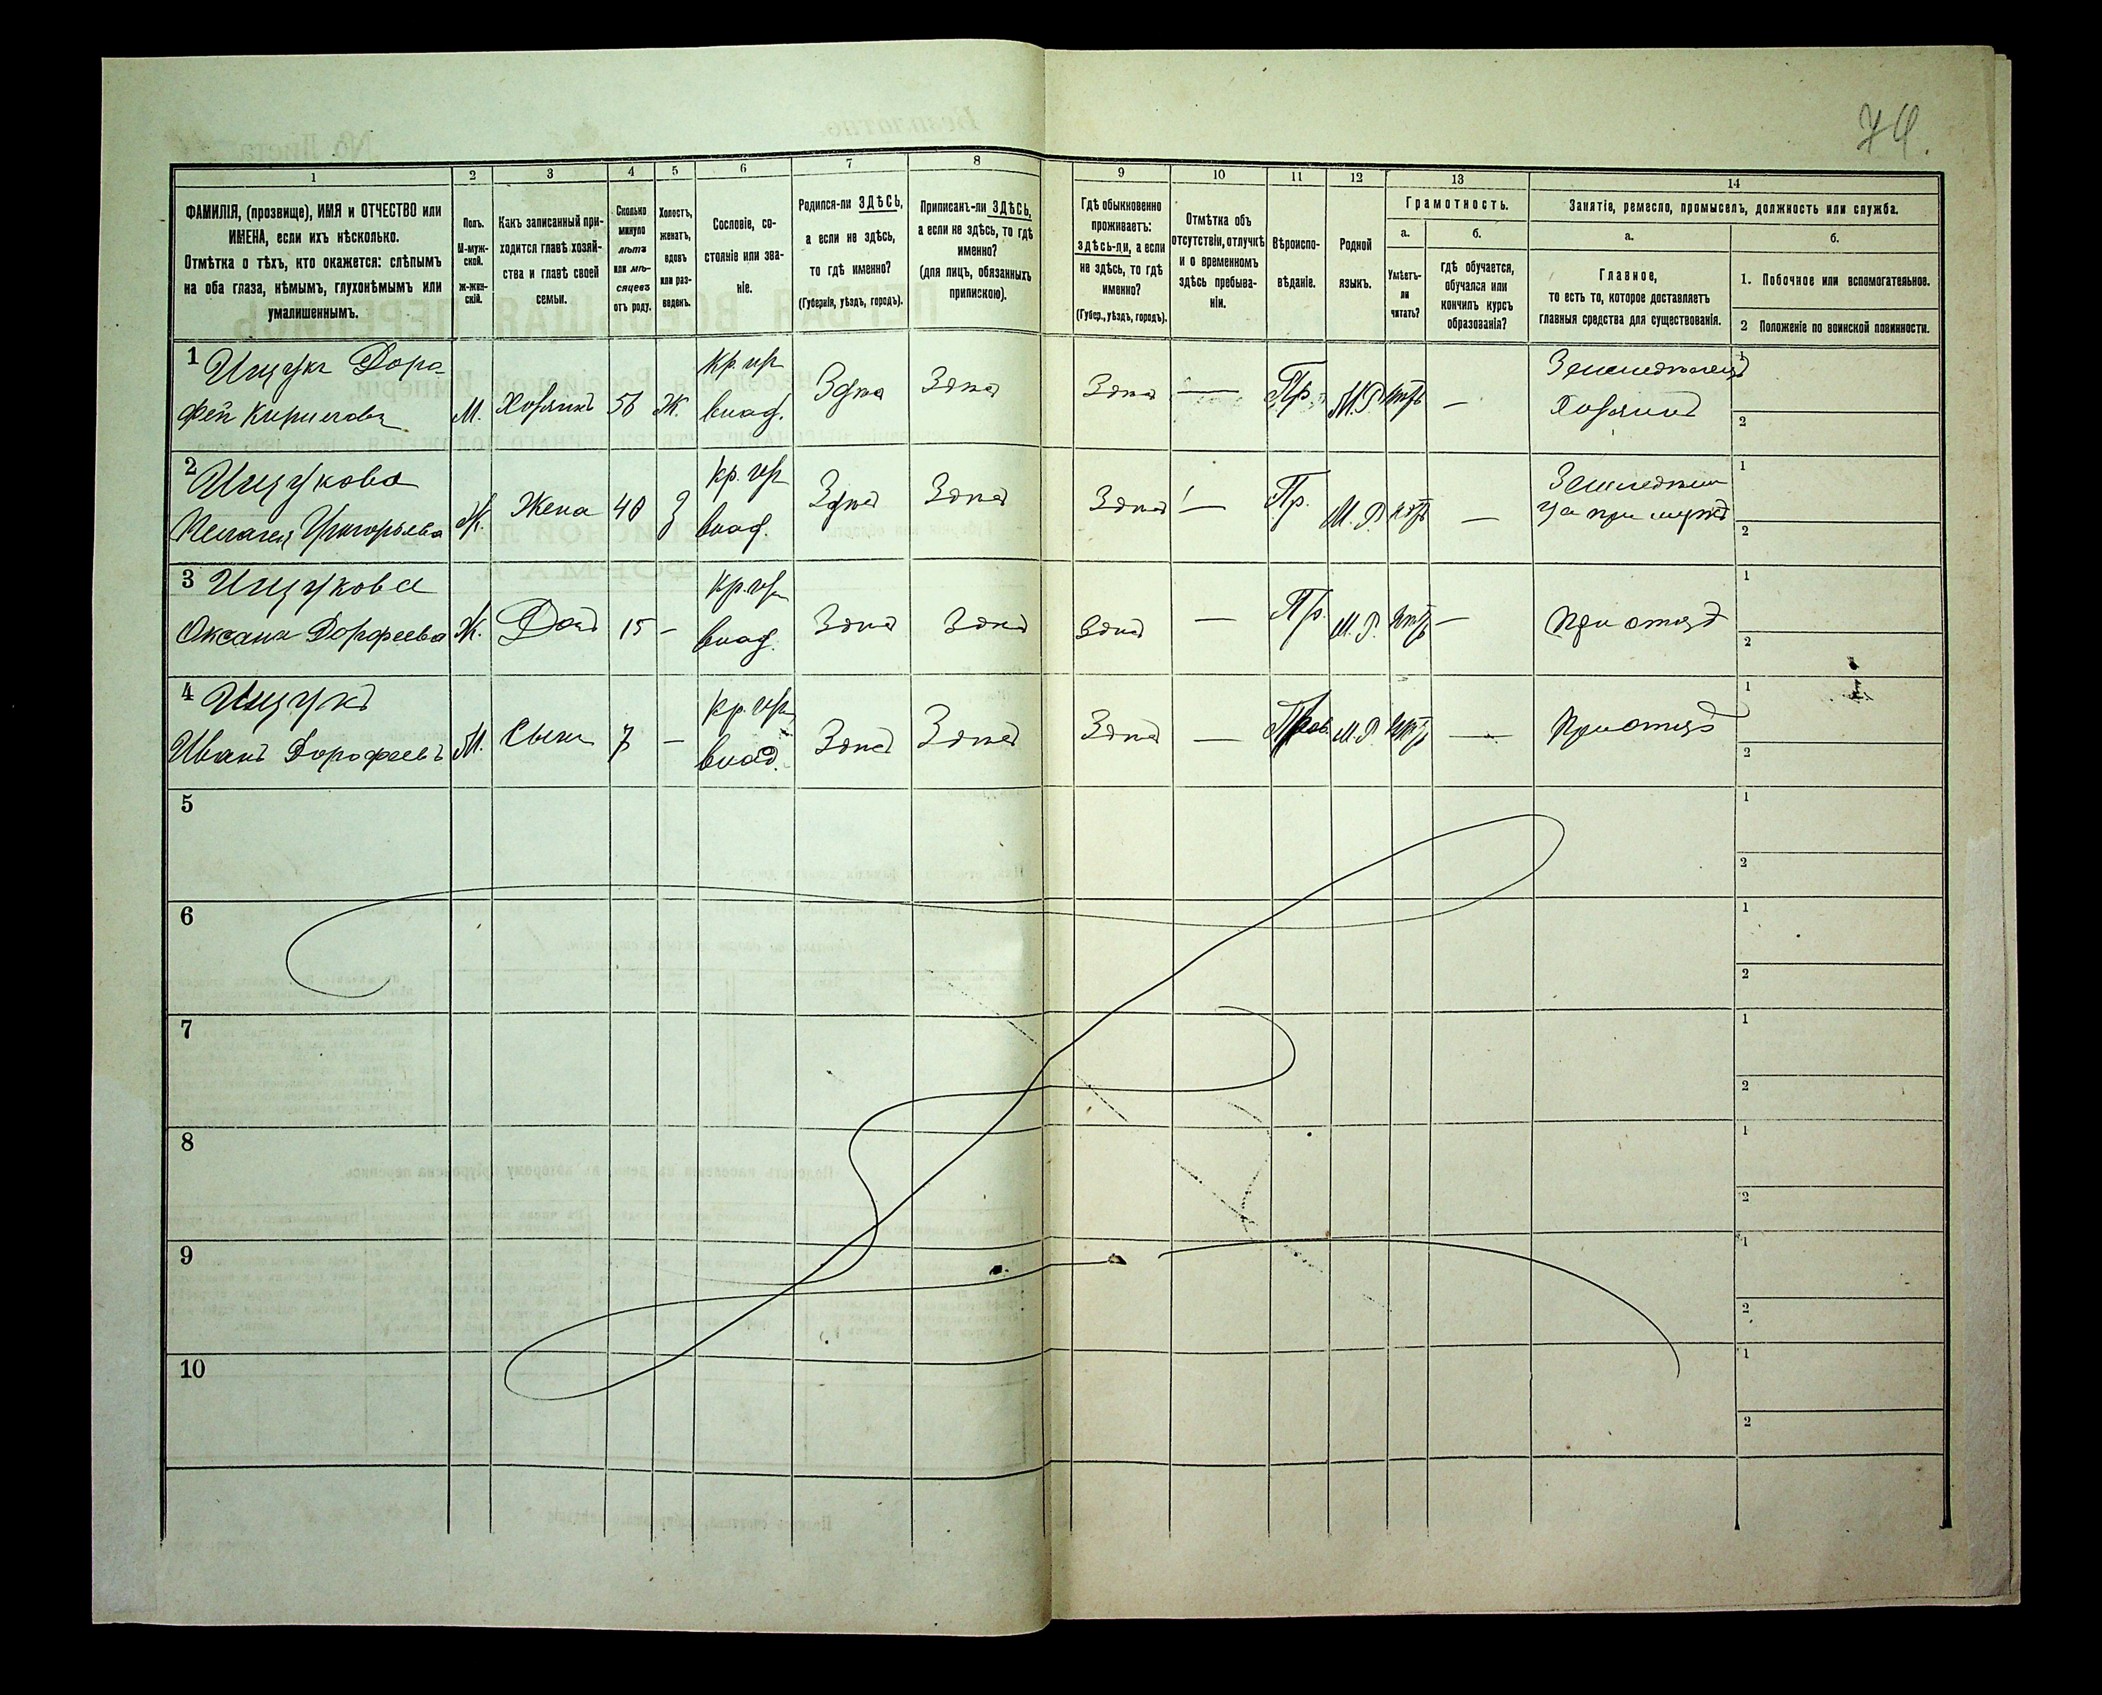 74.
1
2
3
4
5
6
7
8
9
10
11
12
13
14
ФАМИЛІЯ, (прозвище), ИМЯ и ОТЧЕСТВО или
ИМЕНА, если ихъ нѣсколько.
Отмѣтка о тѣхъ, кто окажется: слѣпымъ
на оба глаза, нѣмымъ, глухонѣмымъ или
умалишеннымъ.
Полъ.
М-муж-
ской.
Ж-жен-
скій.
Какъ записанный при-
ходится главѣ хозяй-
ства и главѣ своей
семьи.
Сколько
минуло
лѣтъ
или мѣ-
сяцевъ
отъ роду.
Холостъ,
женатъ,
вдовъ
или раз-
веденъ.
Сословіе, со-
стояніе или зва-
ніе.
Родился-ли ЗДѢСЬ,
а если не здѣсь,
то гдѣ именно?
(Губернія, уѣздъ, городъ).
Приписанъ-ли ЗДѢСЬ,
а если не здѣсь, то гдѣ
именно?
(для лицъ, обязанныхъ
припискою).
Гдѣ обыкновенно
проживаетъ:
здѣсь-ли, а если
не здѣсь, то гдѣ
именно?
(Губер., уѣздъ, городъ).
Отмѣтка объ
отсутствіи, отлучкѣ
и о временномъ
здѣсь пребыва-
ніи.
Вѣроиспо-
вѣданіе.
Родной
языкъ.
Грамотность.
а.
Умѣетъ-
ли
читать?
б.
гдѣ обучается,
обучался или
кончилъ курсъ
образованія?
Занятія, ремесло, промыселъ, должность или служба.
а.
Главное,
то есть то, которое доставляетъ
главныя средства для существованія.
б.
1. Побочное или вспомогательное.
2 Положеніе по воинской повинности.
1 Ищукъ Доро-
фей Кириловъ
М. Хозяинъ 58 Ж. Кр. из
влад. Здѣсь Здѣсь Здѣсь — Пр. М.Р. нѣтъ — Земледѣлецъ
Хозяинъ
1
2
2 Ищукова
Пелагея Григорьева
Ж. Жена 40 З Кр. из
влад. Здѣсь Здѣсь Здѣсь — Пр. М.Р. нѣтъ — Земледѣли
ца при мужѣ
1
2
3 Ищукова
Оксана Дорофеева
Ж. Дочь 15 — Кр. из
влад. Здѣсь Здѣсь Здѣсь — Пр. М.Р. нѣтъ — При отцѣ
1
2
4 Ищукъ
Иванъ Дорофеевъ
М. Сынъ 7 — Кр. из
влад. Здѣсь Здѣсь Здѣсь — Прав. М.Р. нѣтъ — При отцѣ
1
2
5
1
2
6
1
2
7
1
2
8
1
2
9
1
2
10
1
2